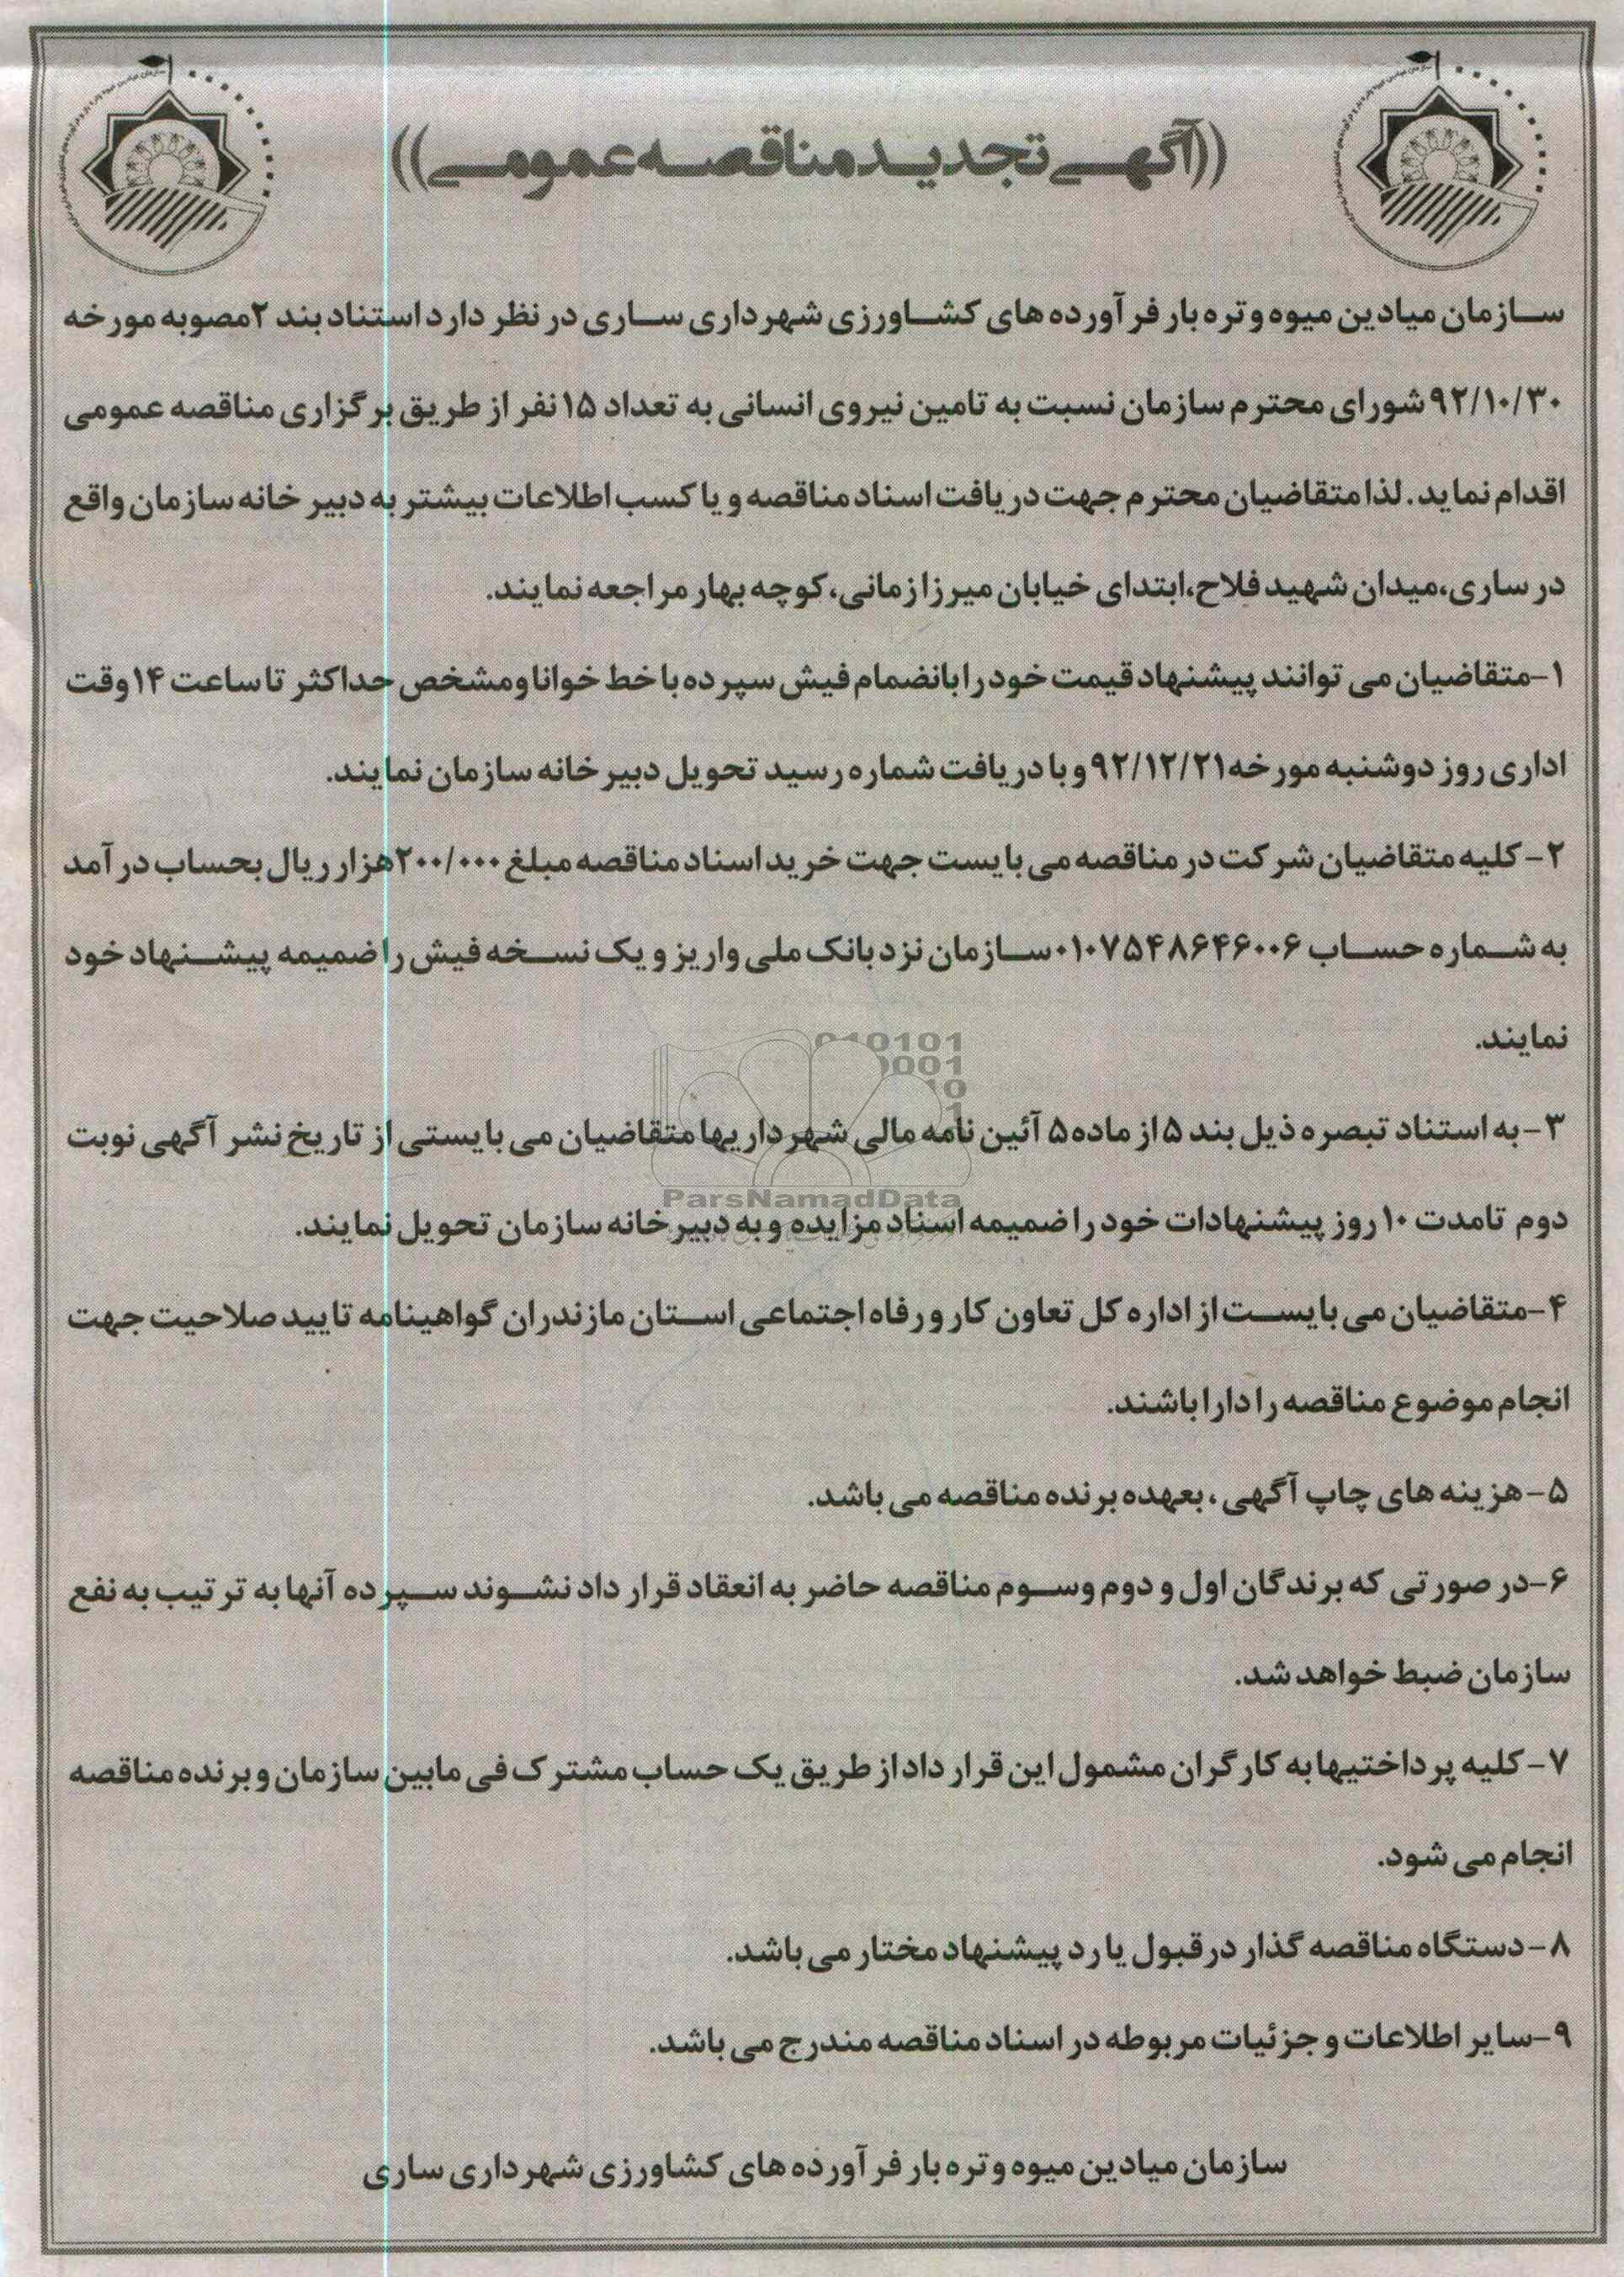 ((آگهی تجدید مناقصه عمومی))
سازمان میادین میوه و تره بار فرآورده های کشاورزی شهرداری ساری در نظر دارد استناد بند ۲ مصوبه مورخه
۹۲/۱۰/۳۰ شورای محترم سازمان نسبت به تامین نیروی انسانی به تعداد ۱۵ نفر از طریق برگزاری مناقصه عمومی
اقدام نماید. لذا متقاضیان محترم جهت دریافت اسناد مناقصه و یا کسب اطلاعات بیشتر به دبیرخانه سازمان واقع
در ساری، میدان شهید فلاح، ابتدای خیابان میرزازمانی، کوچه بهار مراجعه نمایند.
۱-متقاضیان می توانند پیشنهاد قیمت خود را بانضمام فیش سپرده با خط خوانا و مشخص حداکثر تا ساعت ۱۴ وقت
اداری روز دوشنبه مورخه ۹۲/۱۲/۲۱ و با دریافت شماره رسید تحویل دبیرخانه سازمان نمایند.
۲-کلیه متقاضیان شرکت در مناقصه می بایست جهت خرید اسناد مناقصه مبلغ ۲۰۰/۰۰۰ هزار ریال بحساب درآمد
به شماره حساب ۰۱۰۷۵۴۸۶۴۶۰۰۶ سازمان نزد بانک ملی واریز و یک نسخه فیش را ضمیمه پیشنهاد خود
نمایند.
۳-به استناد تبصره ذیل بند ۵ از ماده ۵ آئین نامه مالی شهرداریها متقاضیان می بایستی از تاریخ نشر آگهی نوبت
دوم تا مدت ۱۰ روز پیشنهادات خود را ضمیمه اسناد مزایده و به دبیرخانه سازمان تحویل نمایند.
۴-متقاضیان می بایست از اداره کل تعاون کار و رفاه اجتماعی استان مازندران گواهینامه تایید صلاحیت جهت
انجام موضوع مناقصه را دارا باشند.
۵-هزینه های چاپ آگهی، بعهده برنده مناقصه می باشد.
۶-در صورتی که برندگان اول و دوم و سوم مناقصه حاضر به انعقاد قرار داد نشوند سپرده آنها به ترتیب به نفع
سازمان ضبط خواهد شد.
۷-کلیه پرداختیها به کارگران مشمول این قرار داد از طریق یک حساب مشترک فی مابین سازمان و برنده مناقصه
انجام می شود.
۸-دستگاه مناقصه گذار در قبول یا رد پیشنهاد مختار می باشد.
۹-سایر اطلاعات و جزئیات مربوطه در اسناد مناقصه مندرج می باشد.
سازمان میادین میوه و تره بار فرآورده های کشاورزی شهرداری ساری
ParsNamadData